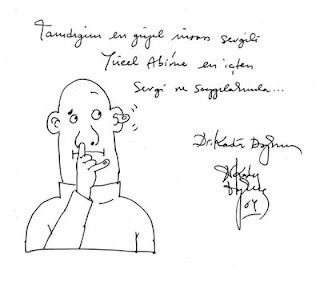 Tanıdığım en güzel insan sevgili
Yücel Abime en içten
Sevgi ve saygılarımla...
Dr. Kadir Doğruer
04